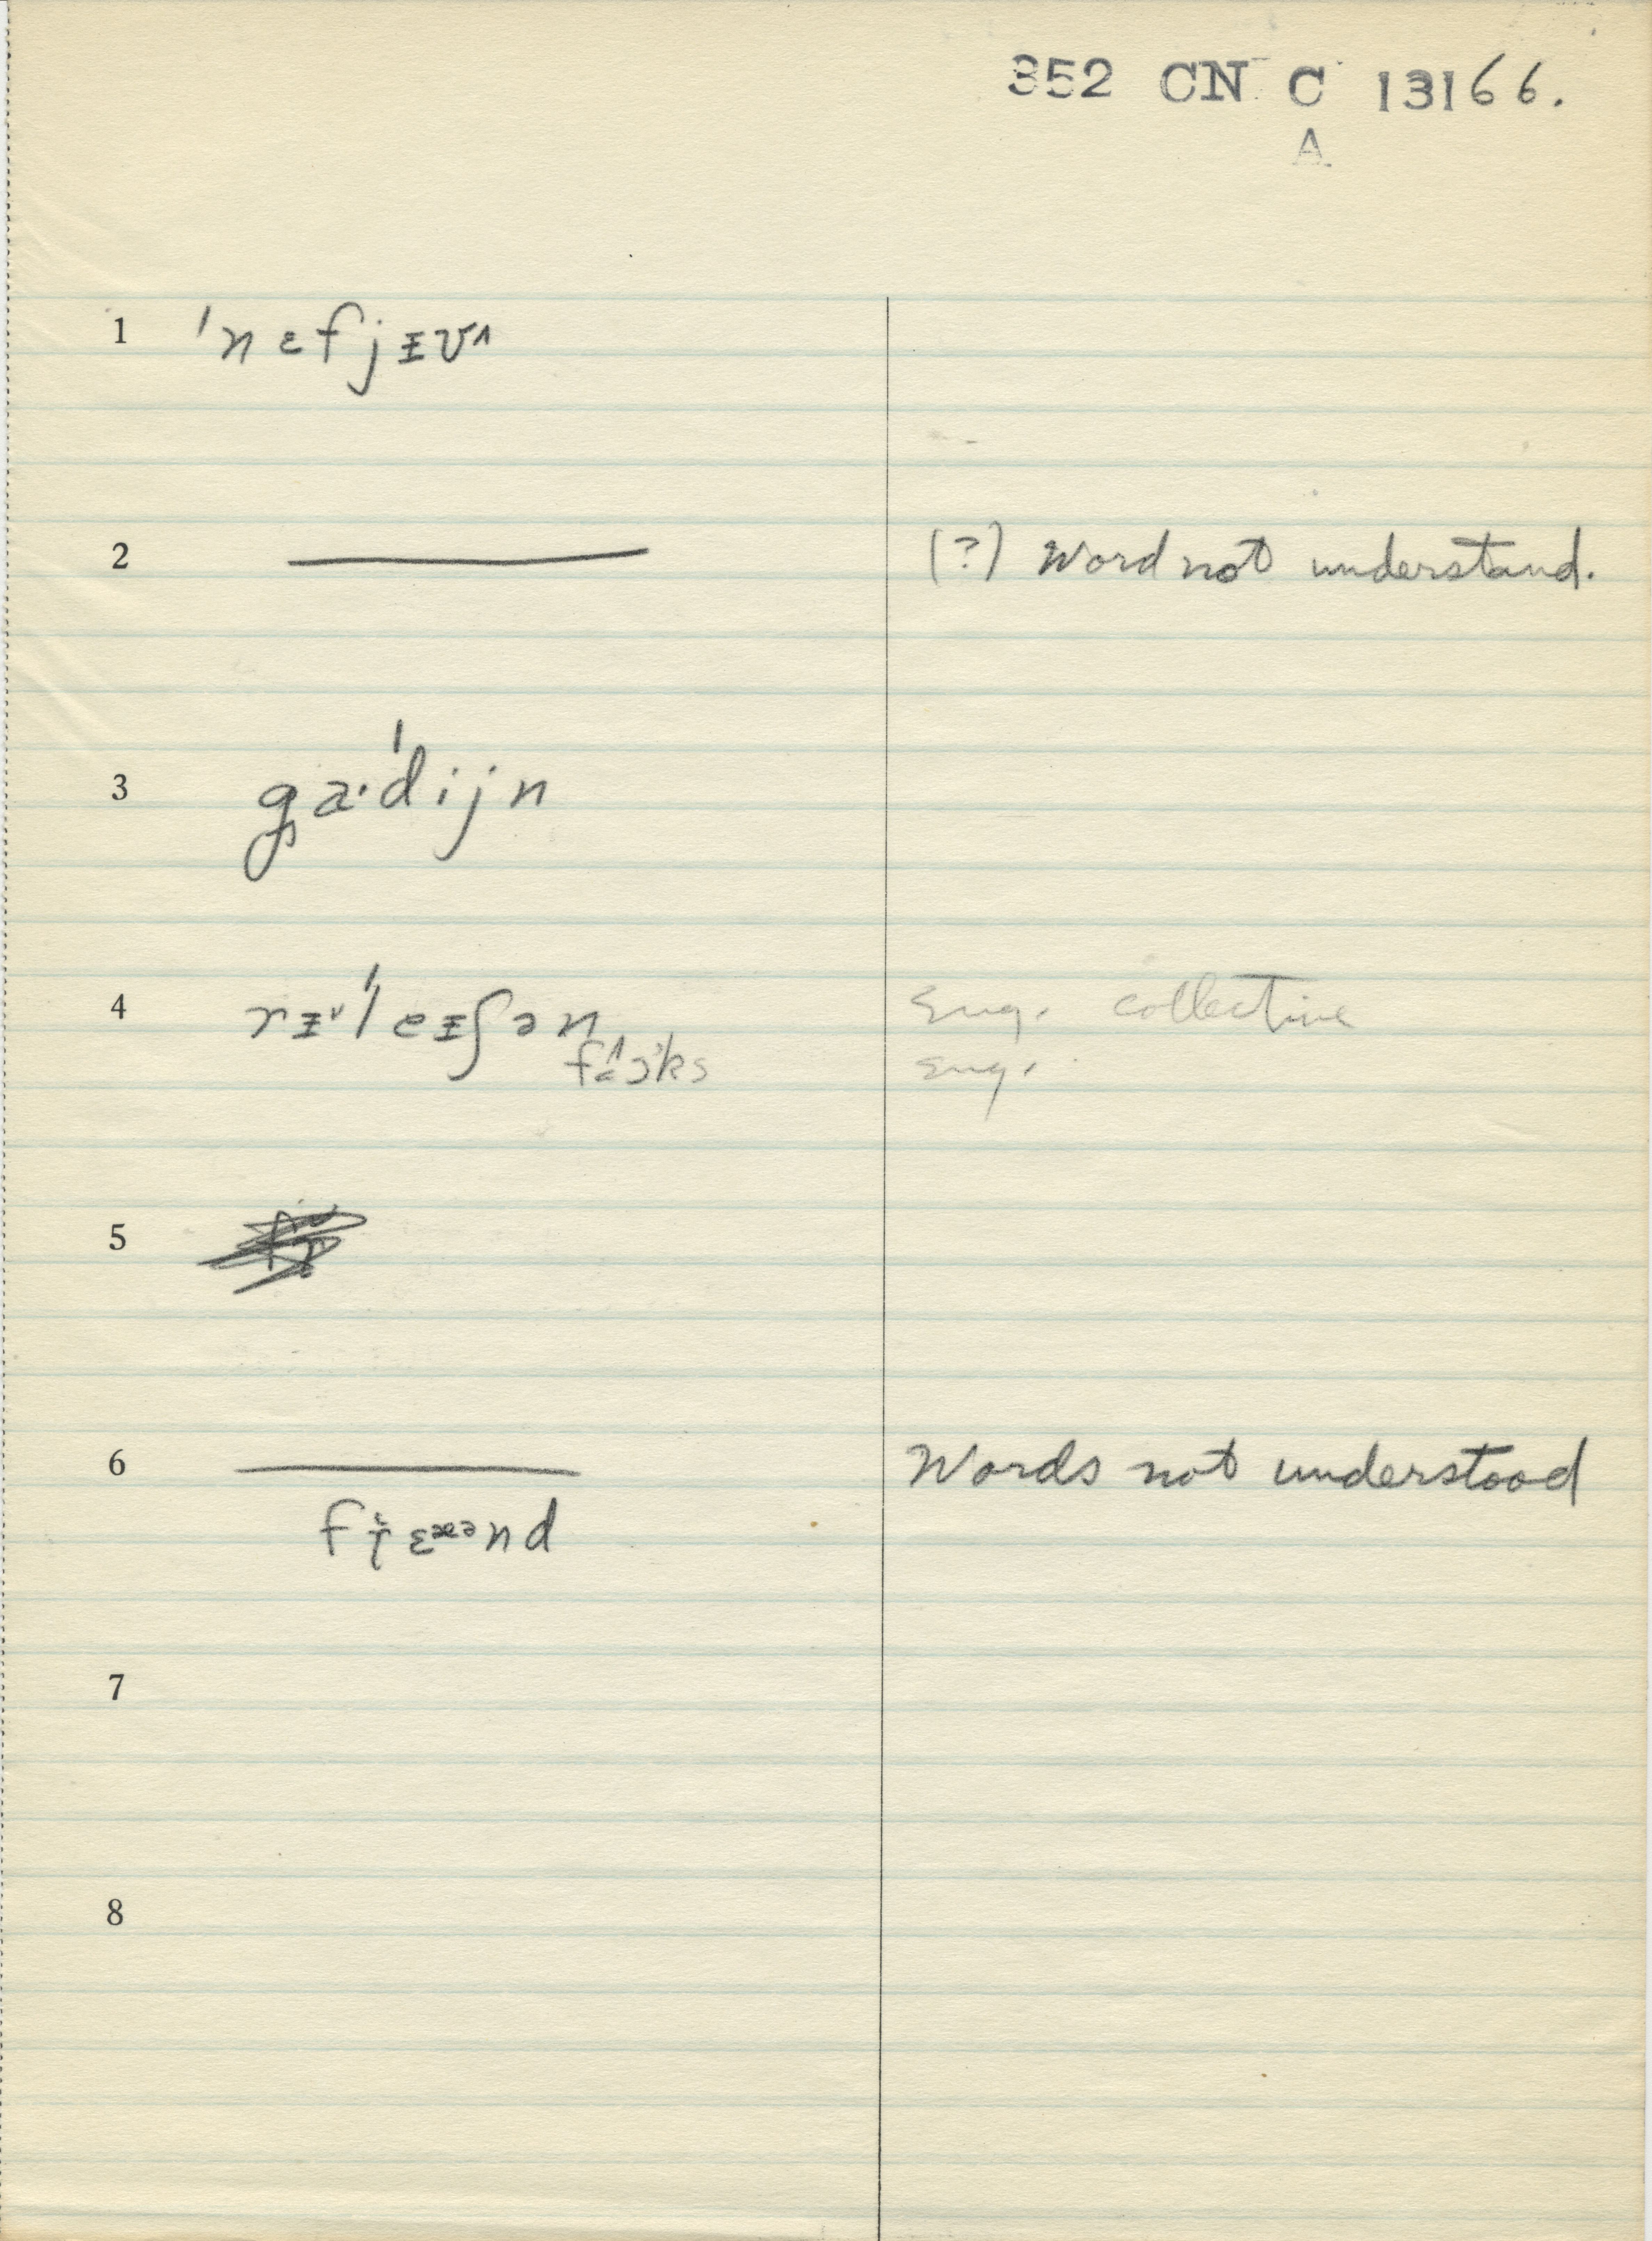 352 CN C 13166.
A
1 ˈnɛfjɪv^
2 (?) Word not understand.
3 ga·ˈdijn
4 rɪᵛˈleɪʃən Eng. collective
Eng.
5
6 Words not understood
7
8